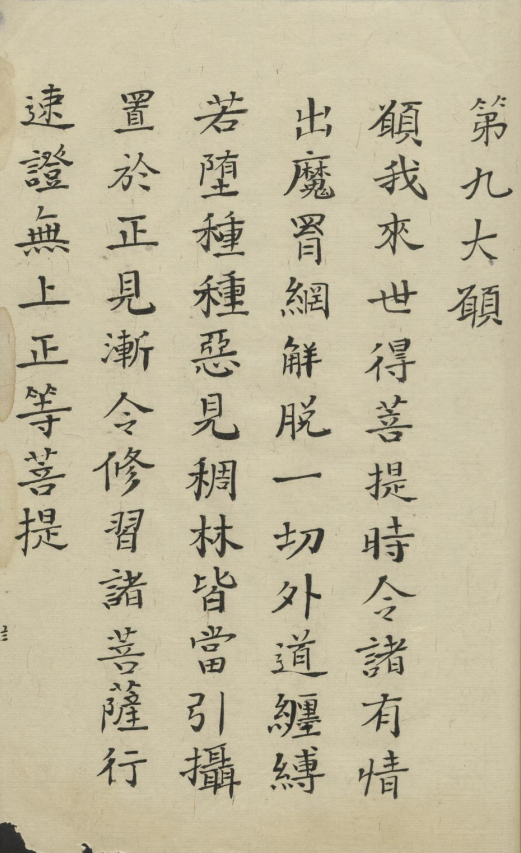 第九大願
願我來世得菩提時令諸有情
出魔罥網解脱一切外道纏縛
若墮種種惡見稠林皆當引攝
置於正見漸令修習諸菩薩行
速證無上正等菩提